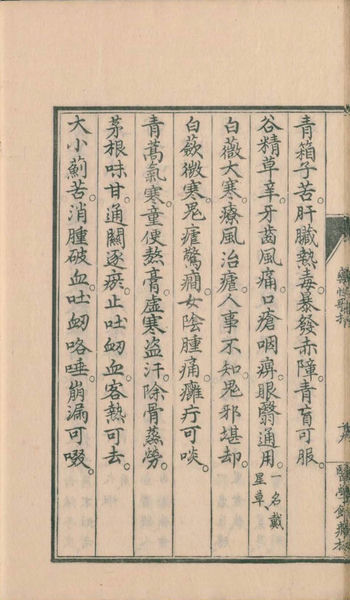 青箱子苦。肝臟熱毒。暴發赤障。青盲可服。
谷精草辛。牙齒風痛。口瘡咽痹。眼翳通用。一名戴星草
白薇大寒。療風治瘧。人事不知。鬼邪堪却。
白蘞微寒。児瘧驚癇。女陰腫痛。癰疔可啖。
青蒿氣寒。童便熬膏。虛寒盜汗。除骨蒸勞。
茅根味甘。通關逐瘀。止吐衂血。客熱可去。
大小薊苦。消腫破血。吐衂咯唾。崩漏可啜。